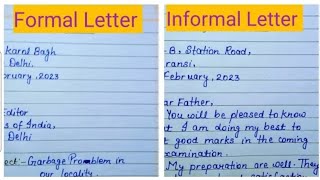 Formal Letter
karol Bagh
Delhi.
bruary, 2023
Editor
s of India,
Delhi
ect:- Garbage Problem in
our locality.
Informal Letter
-B, Station Road,
ransi.
February, 2023
ar Father,
You will be pleased to know
t I am doing my best to
t good marks in the coming
xamination.
My preparation are well. They